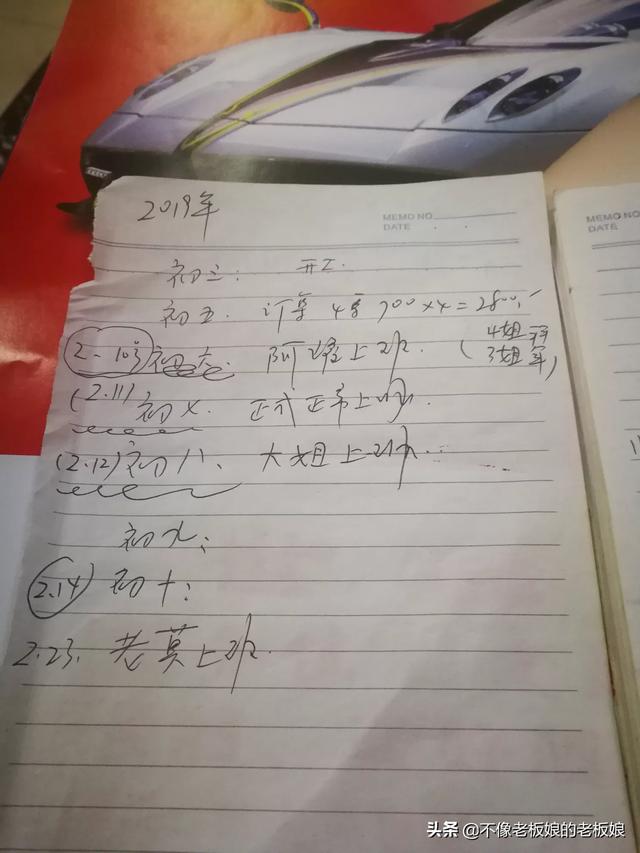 2019年
MEMO NO.
DATE
MEMO NO
DATE
初三: 开工.
初五. 计算 4号 700×4=2800.
2-10号 初六. 阿 上班. (4姐
3姐
(2.11) 初 正式正常上
(2.12) 初八、 大姐上班.
初九:
2.14) 初十:
2.23. 老莫上班.
头条 @不像老板娘的老板娘